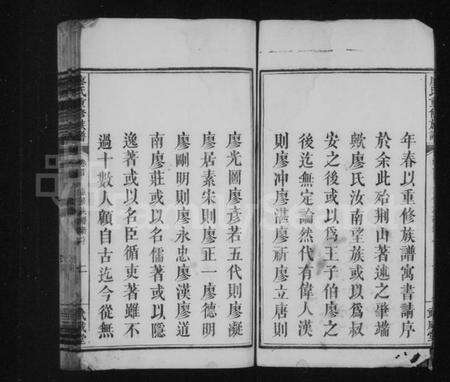 年春以重修族譜寓書請序
於余此殆荆由著述之肇端
歟廖氏汝南望族或以爲叔
安之後或以爲王子伯廖之
後迄無定論然代有偉人漢
則廖冲廖湛廖祈廖立唐則
廖光圖廖彥若五代則廖凝
廖居素宋則廖正一廖德明
廖剛明則廖永忠廖漢廖道
南廖莊或以名儒著或以隱
逸著或以名臣循吏著雖不
過十數人顧自古迄今從無